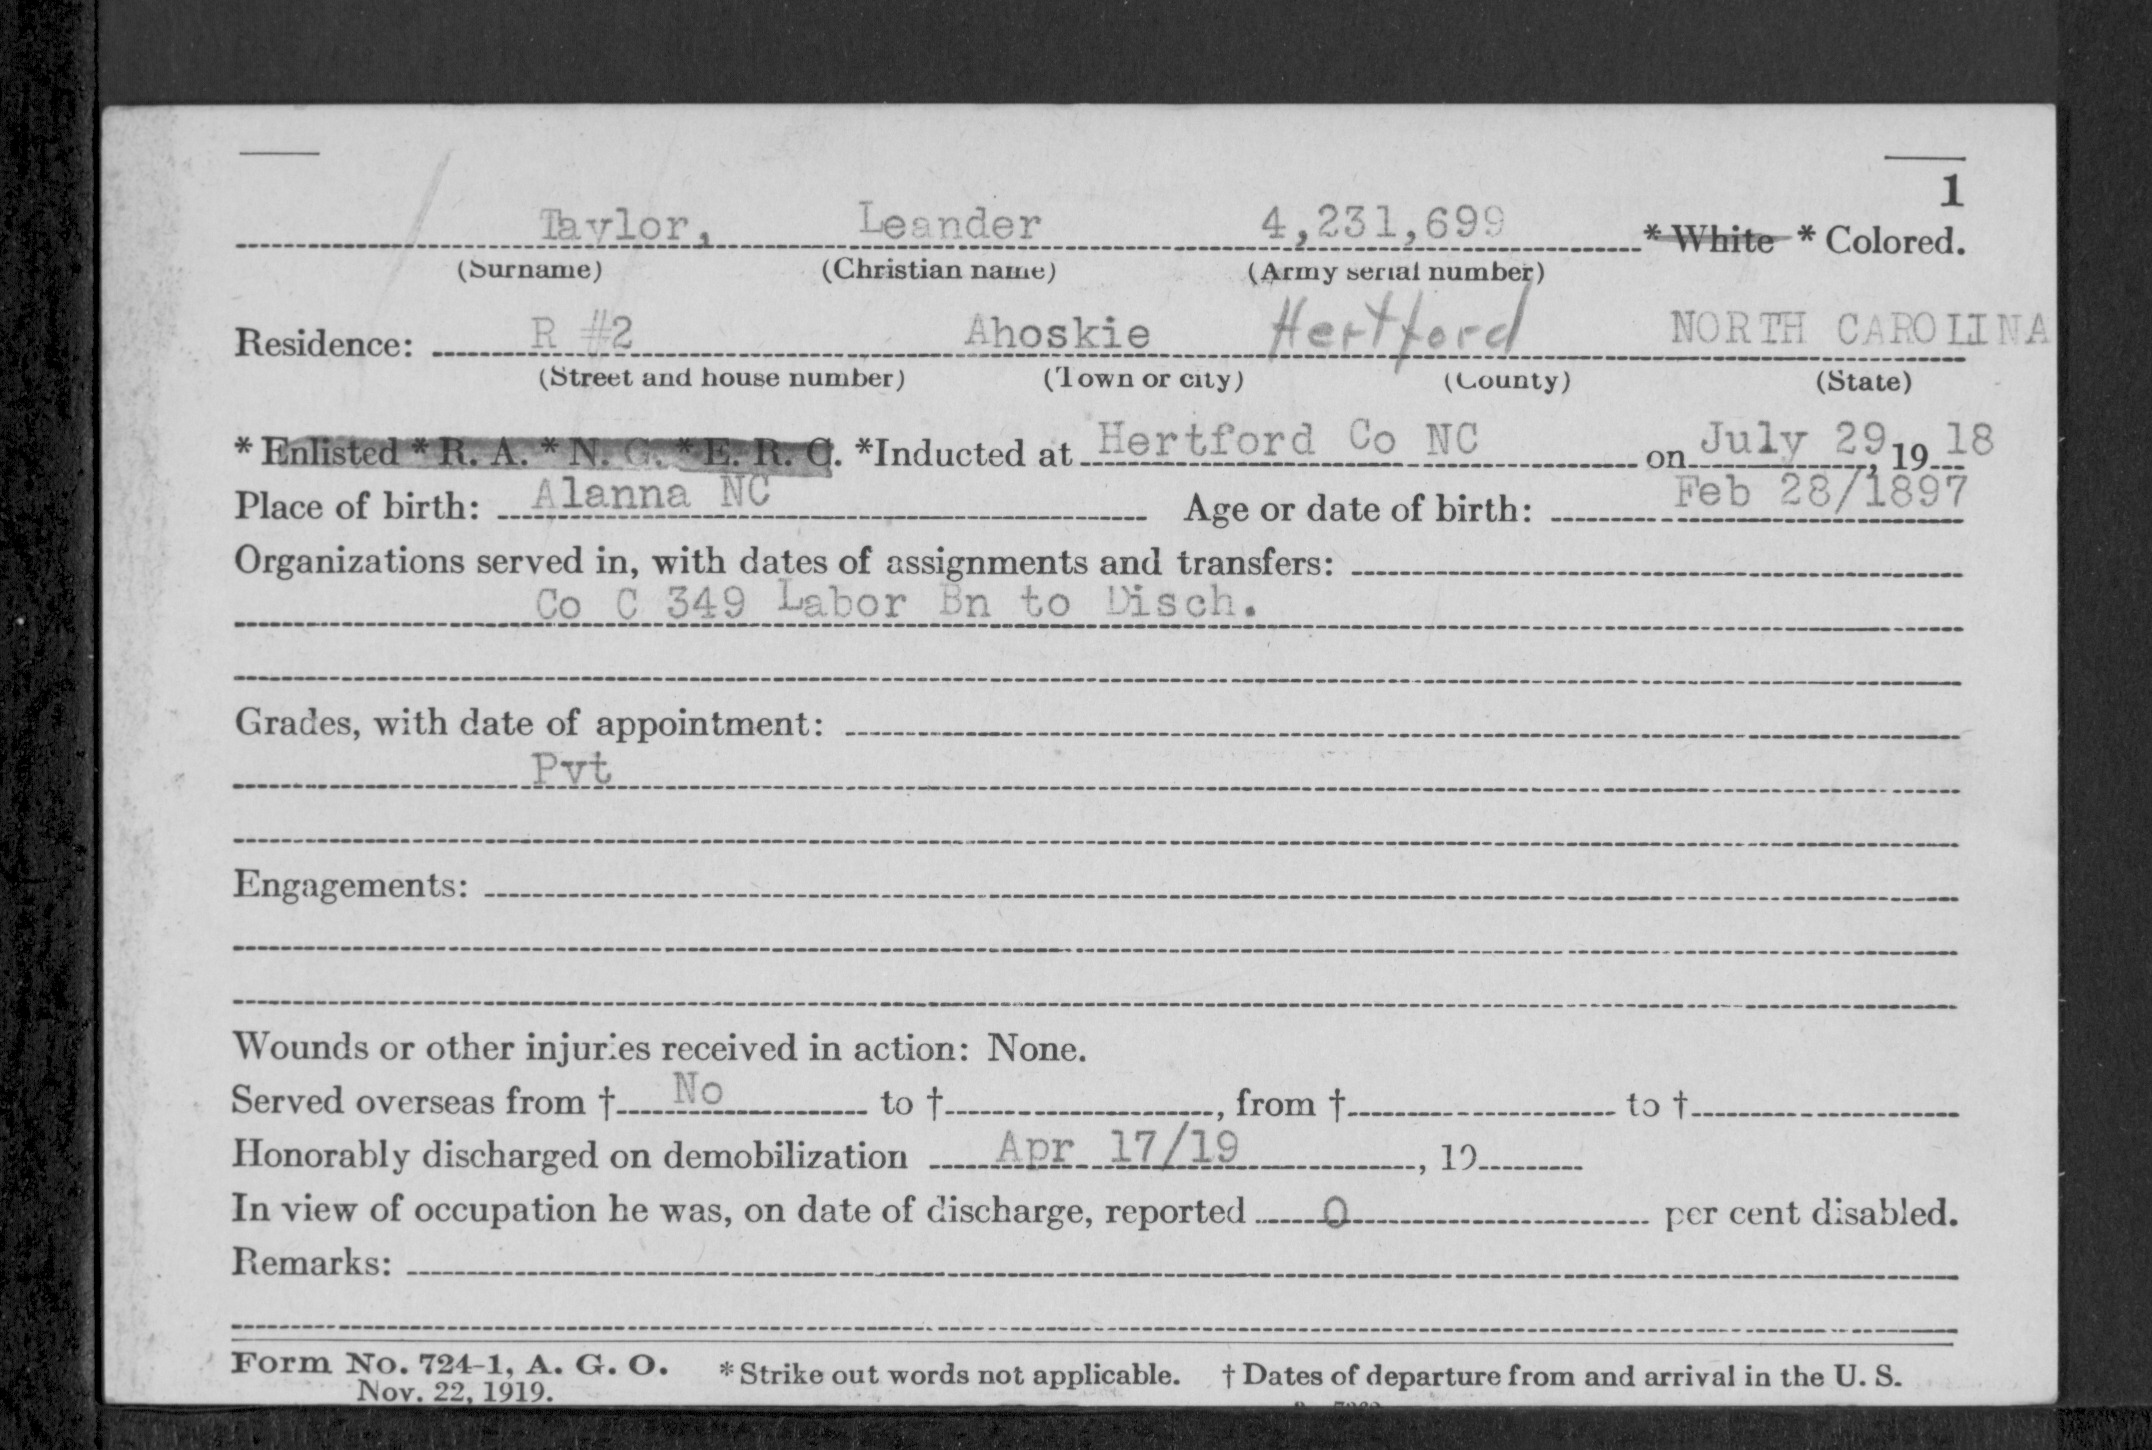 1
Taylor, Leander 4,231,699 * White * Colored.
(Surname) (Christian name) (Army serial number)
Residence: R #2 Ahoskie Hertford NORTH CAROLINA
(Street and house number) (Town or city) (County) (State)
* Enlisted * R. A. * N. G. * E. R. C. *Inducted at Hertford Co NC on July 29, 19 18
Place of birth: Alanna NC Age or date of birth: Feb 28/1897
Organizations served in, with dates of assignments and transfers:
Co C 349 Labor Bn to Disch.
Grades, with date of appointment:
Pvt
Engagements:
Wounds or other injuries received in action: None.
Served overseas from † No to †, from † to †
Honorably discharged on demobilization Apr 17/19, 19
In view of occupation he was, on date of discharge, reported 0 per cent disabled.
Remarks:
Form No. 724-1, A. G. O. * Strike out words not applicable. † Dates of departure from and arrival in the U. S.
Nov. 22, 1919.